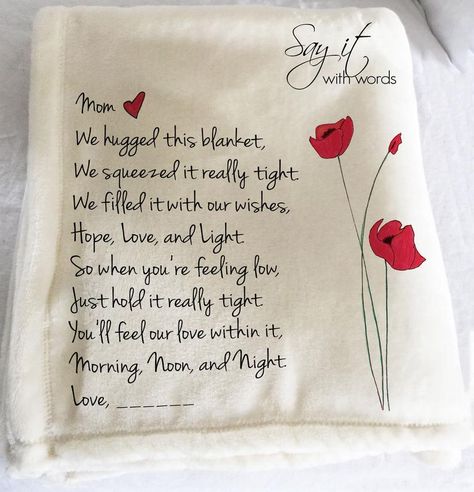 Say it
with words
Mom
We hugged this blanket,
We squeezed it really tight.
We filled it with our wishes,
Hope, Love, and Light.
So when you're feeling low,
Just hold it really tight.
You'll feel our love within it,
Morning, Noon, and Night.
Love, ______